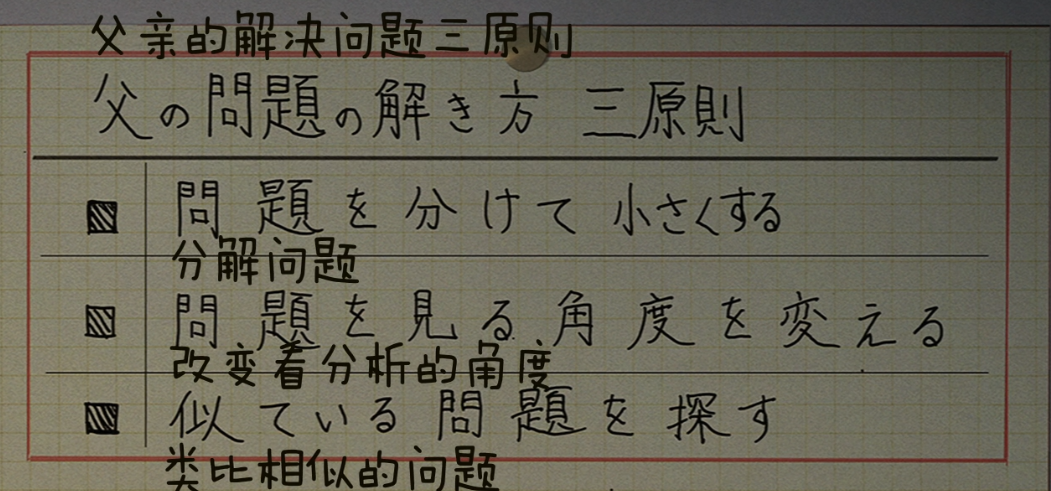 父亲的解决问题三原则
父の問題の解き方 三原則
問題を分けて小さくする
分解问题
問題を見る角度を変える
改变着分析的角度
似ている問題を探す
类比相似的问题